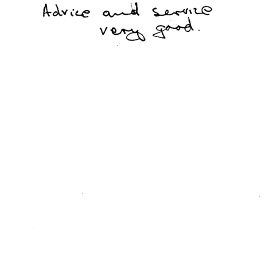 Advice and service
very good.